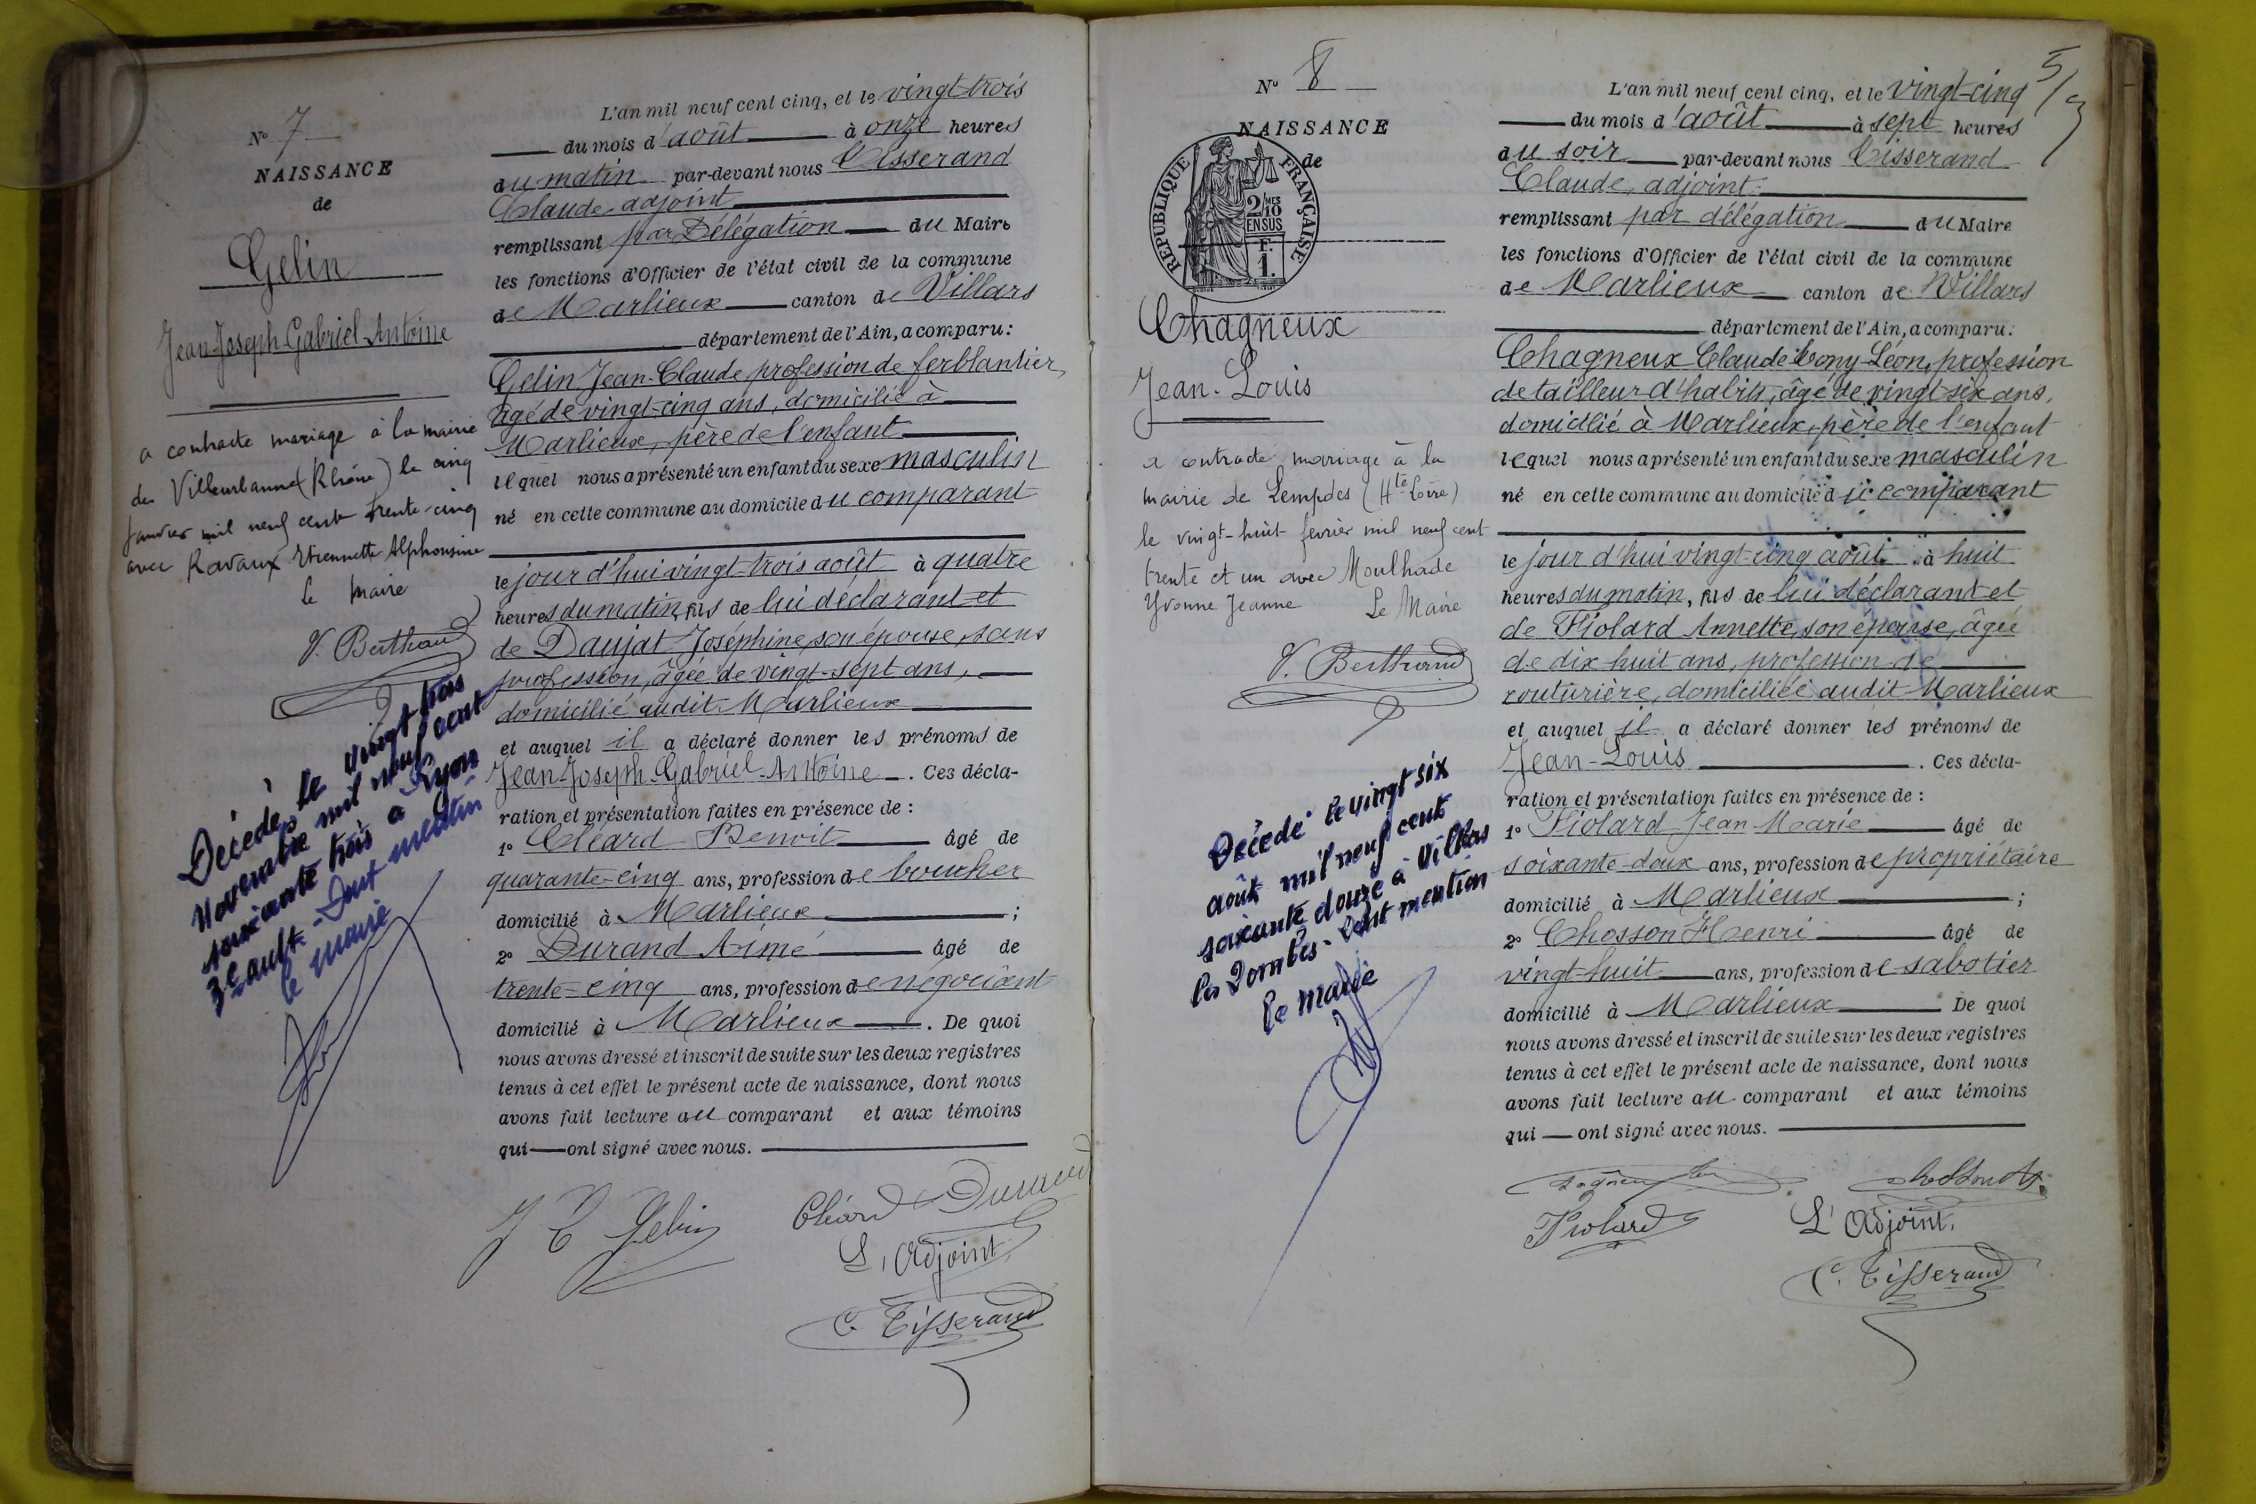 N° 7
NAISSANCE
de
Gelin
Jean-Joseph-Gabriel-Antoine
a contracté mariage à la mairie
de Villeurbanne (Rhône) le cinq
janvier mil neuf cent trente-cinq
avec Ravaux Etiennette Alphonsine
le Maire
V. Berthaud
Décédé le vingt trois
novembre mil neuf cent
soixante trois à Lyon
3e
le maire
L'an mil neuf cent cinq, et le vingt-trois
du mois d'août à onze heures
du matin par-devant nous Tisserand
Claude, adjoint
remplissant par Délégation du Maire
les fonctions d'Officier de l'état civil de la commune
de Marlieux canton de Villars
département de l'Ain, a comparu:
Gelin Jean-Claude profession de ferblantier,
âgé de vingt-cinq ans, domicilié à
Marlieux, père de l'enfant
lequel nous a présenté un enfant du sexe masculin
né en cette commune au domicile du comparant
le jour d'hui vingt-trois août à quatre
heures du matin, fils de lui déclarant et
de Daujat Joséphine, son épouse, sans
profession, âgée de vingt-sept ans,
domicilié audit Marlieux
et auquel il a déclaré donner les prénoms de
Jean-Joseph-Gabriel-Antoine. Ces décla-
ration et présentation faites en présence de :
1° Cléard Benoit âgé de
quarante-cinq ans, profession de boucher
domicilié à Marlieux ;
2° Durand Aimé âgé de
trente-cinq ans, profession de négociant
domicilié à Marlieux. De quoi
nous avons dressé et inscrit de suite sur les deux registres
tenus à cet effet le présent acte de naissance, dont nous
avons fait lecture au comparant et aux témoins
qui ont signé avec nous.
J C Gelin Cléard Durand
L'Adjoint
C. Tisserand
5/
N° 8
NAISSANCE
de
RÉPUBLIQUE FRANÇAISE
2/10 MES
EN SUS
F.
1.
Chagneux
Jean-Louis
a contracté mariage à la
mairie de Lempdes (Hte Loire)
le vingt-huit février mil neuf cent
trente et un avec Moulhade
Yvonne Jeanne Le Maire
V. Berthaud
Décédé le vingt six
août mil neuf cent
soixante douze à Villars
les Dombes - dont mention
le maire
L'an mil neuf cent cinq, et le vingt-cinq
du mois d'août à sept heures
du soir par-devant nous Tisserand
Claude, adjoint
remplissant par délégation du Maire
les fonctions d'Officier de l'état civil de la commune
de Marlieux canton de Villars
département de l'Ain, a comparu:
Chagneux Claude Léon, profession
de tailleur d'habits, âgé de vingt six ans,
domicilié à Marlieux, père de l'enfant
lequel nous a présenté un enfant du sexe masculin
né en cette commune au domicile du comparant
le jour d'hui vingt-cinq août à huit
heures du matin, fils de lui déclarant et
de Piolard Annette, son épouse, âgée
de dix huit ans, profession de
couturière, domiciliée audit Marlieux
et auquel il a déclaré donner les prénoms de
Jean-Louis. Ces décla-
ration et présentation faites en présence de :
1° Piolard Jean-Marie âgé de
soixante-deux ans, profession de propriétaire
domicilié à Marlieux ;
2° Chosson Henri âgé de
vingt-huit ans, profession de sabotier
domicilié à Marlieux De quoi
nous avons dressé et inscrit de suite sur les deux registres
tenus à cet effet le présent acte de naissance, dont nous
avons fait lecture au comparant et aux témoins
qui ont signé avec nous.
Piolard L'Adjoint,
C. Tisserand